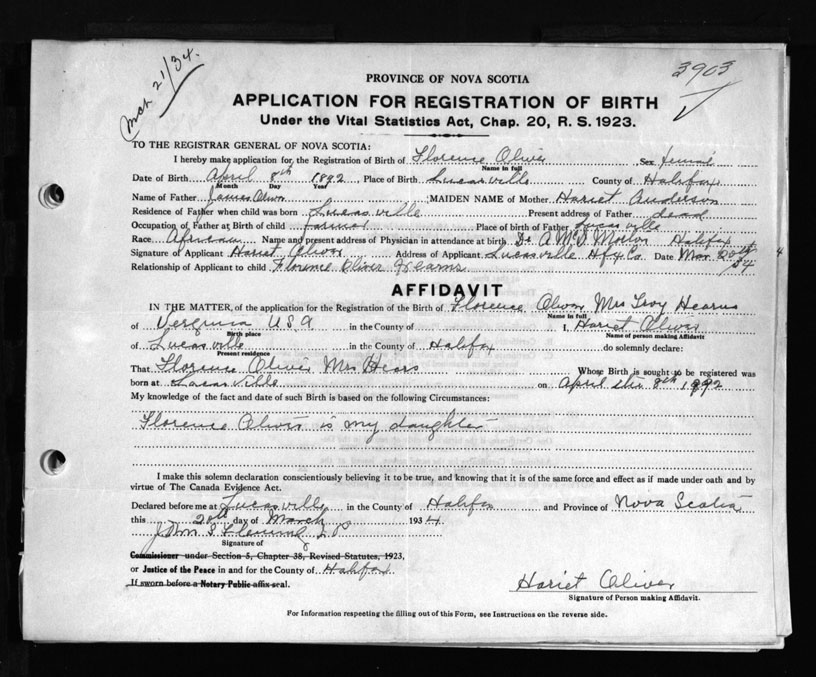 Mch 21/34.
3903
PROVINCE OF NOVA SCOTIA
APPLICATION FOR REGISTRATION OF BIRTH
Under the Vital Statistics Act, Chap. 20, R. S. 1923.
TO THE REGISTRAR GENERAL OF NOVA SCOTIA:
I hereby make application for the Registration of Birth of Florence Oliver Sex female
Name in full
Date of Birth April 8th 1892 Place of Birth Lucasville County of Halifax
Month Day Year
Name of Father James Oliver MAIDEN NAME of Mother Hariet Anderson
Residence of Father when child was born Lucasville Present address of Father dead
Occupation of Father at Birth of child farmer Place of birth of Father Lucasville
Race African Name and present address of Physician in attendance at birth Dr A McD Morton Halifax
Signature of Applicant Hariet Oliver Address of Applicant Lucasville Hfx Co. Date Mar 20th
34
Relationship of Applicant to child Florence Oliver Hearns
AFFIDAVIT
IN THE MATTER, of the application for the Registration of the Birth of Florence Oliver Mrs Levy Hearns
Name in full
of Verginia U S A in the County of I, Hariet Oliver
Birth place Name of person making Affidavit
of Lucasville in the County of Halifax do solemnly declare:
Present residence
That Florence Oliver Mrs Hears Whose Birth is sought to be registered was
born at Lucasville on April the 8th 1892
My knowledge of the fact and date of such Birth is based on the following Circumstances:
Florence Oliver is my daughter
I make this solemn declaration conscientiously believing it to be true, and knowing that it is of the same force and effect as if made under oath and by
virtue of The Canada Evidence Act.
Declared before me at Lucasville in the County of Halifax and Province of Nova Scotia
this 20th day of March 1934
John S Fleming J P
Signature of
Commissioner under Section 5, Chapter 38, Revised Statutes, 1923,
or Justice of the Peace in and for the County of Halifax
If sworn before a Notary Public affix seal.
Hariet Oliver
Signature of Person making Affidavit.
For Information respecting the filling out of this Form, see Instructions on the reverse side.